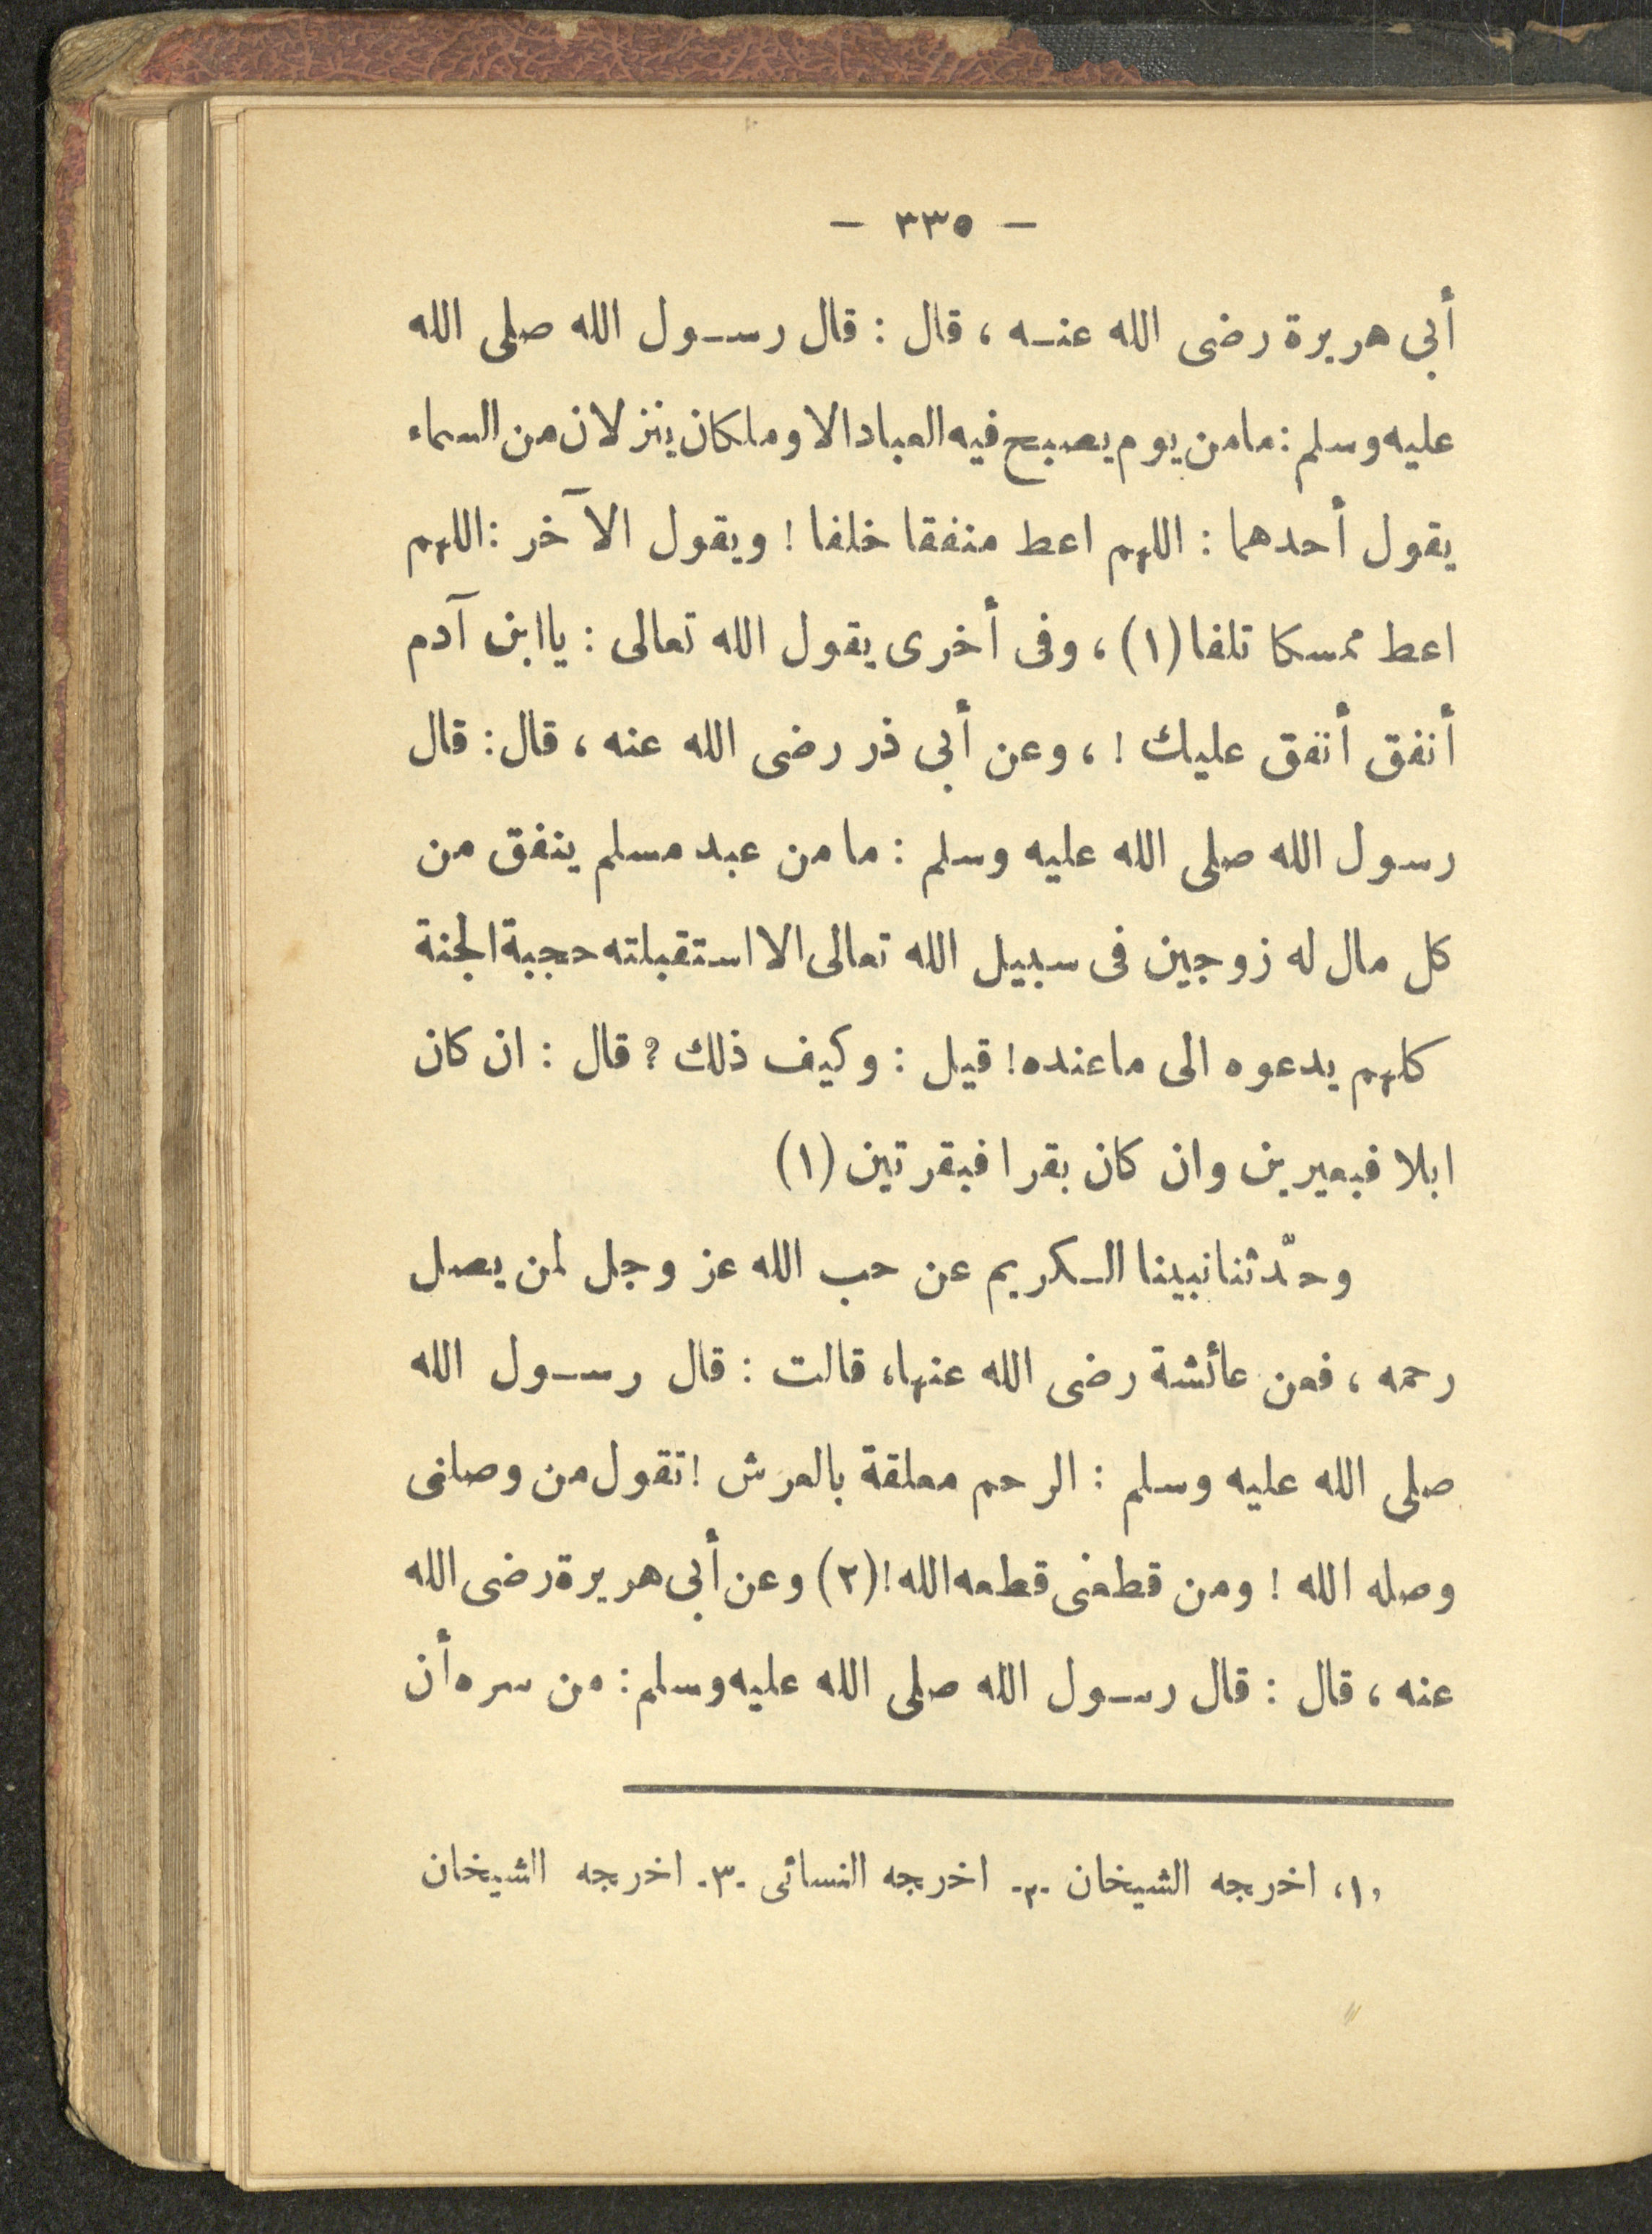 — ٣٣٥ —
أبى هريرة رضى الله عنه ، قال : قال رسول الله صلى الله
عليه وسلم : مامن يوم يصبح فيه العباد الا وملكان ينزلان من السماء
يقول أحدهما : اللهم اعط منفقا خلفا ! ويقول الآخر : اللهم
اعط ممسكا تلفا (١) ، وفى أخرى يقول الله تعالى : ياابن آدم
أنفق أنفق عليك ! ، وعن أبى ذر رضى الله عنه ، قال : قال
رسول الله صلى الله عليه وسلم : مامن عبد مسلم ينفق من
كل مال له زوجين فى سبيل الله تعالى الا استقبلته حجبة الجنة
كلهم يدعوه الى ماعنده ! قيل : وكيف ذلك ? قال : ان كان
ابلا فبعيرين وان كان بقرا فبقرتين (١)
وحدّثنا نبينا الكريم عن حب الله عز وجل لمن يصل
رحمه ، فعن عائشة رضى الله عنها ، قالت : قال رسول الله
صلى الله عليه وسلم : الرحم معلقة بالعرش ! تقول من وصلنى
وصله الله ! ومن قطعنى قطعه الله ! (٢) وعن أبى هريرة رضى الله
عنه ، قال : قال رسول الله صلى الله عليه وسلم : من سره أن
،١، اخرجه الشيخان -٢- اخرجه النسائى -٣- اخرجه الشيخان